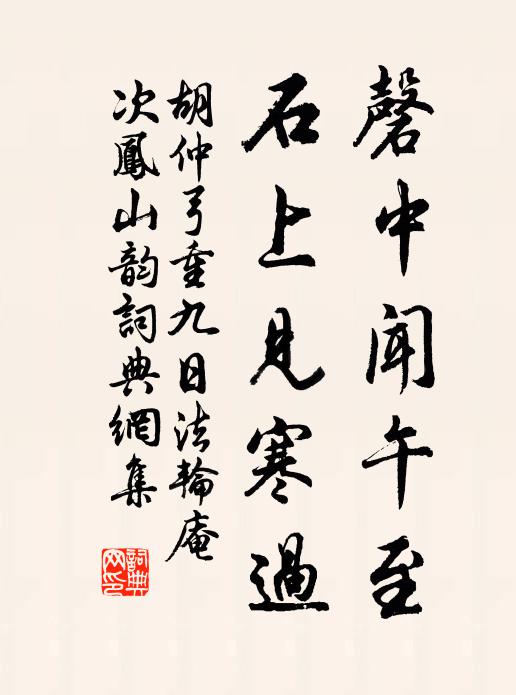 磬中闻午至
石上見寒過
胡仲弓重九日法輪庵
次鳳山韵詞典網集
詞典网印